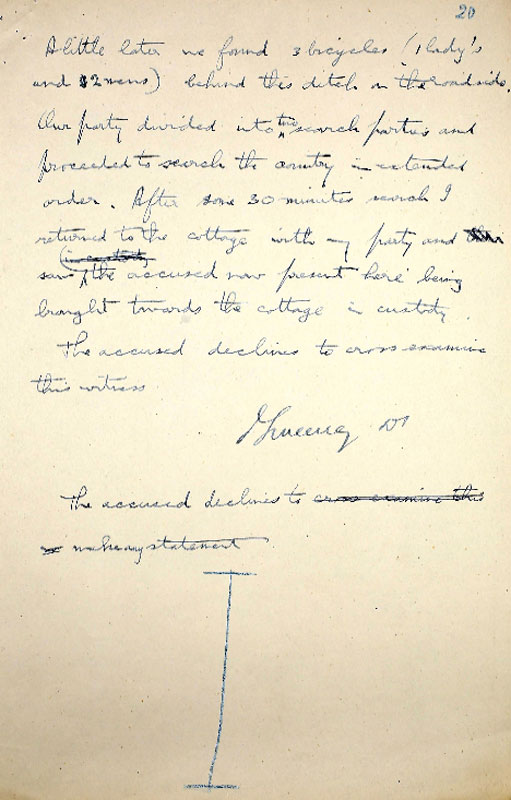 20
A little later we found 3 bicycles (1 lady's
and 2 mens) behind this ditch on the roadside.
Our party divided into two search parties and
proceeded to search the country in extended
order. After some 30 minutes search I
returned to the cottage with my party and
(in custody)
saw the accused now present here being
brought towards the cottage in custody
The accused declines to cross examine
this witness
Sweeney
The accused declines to cross examine this
make any statement